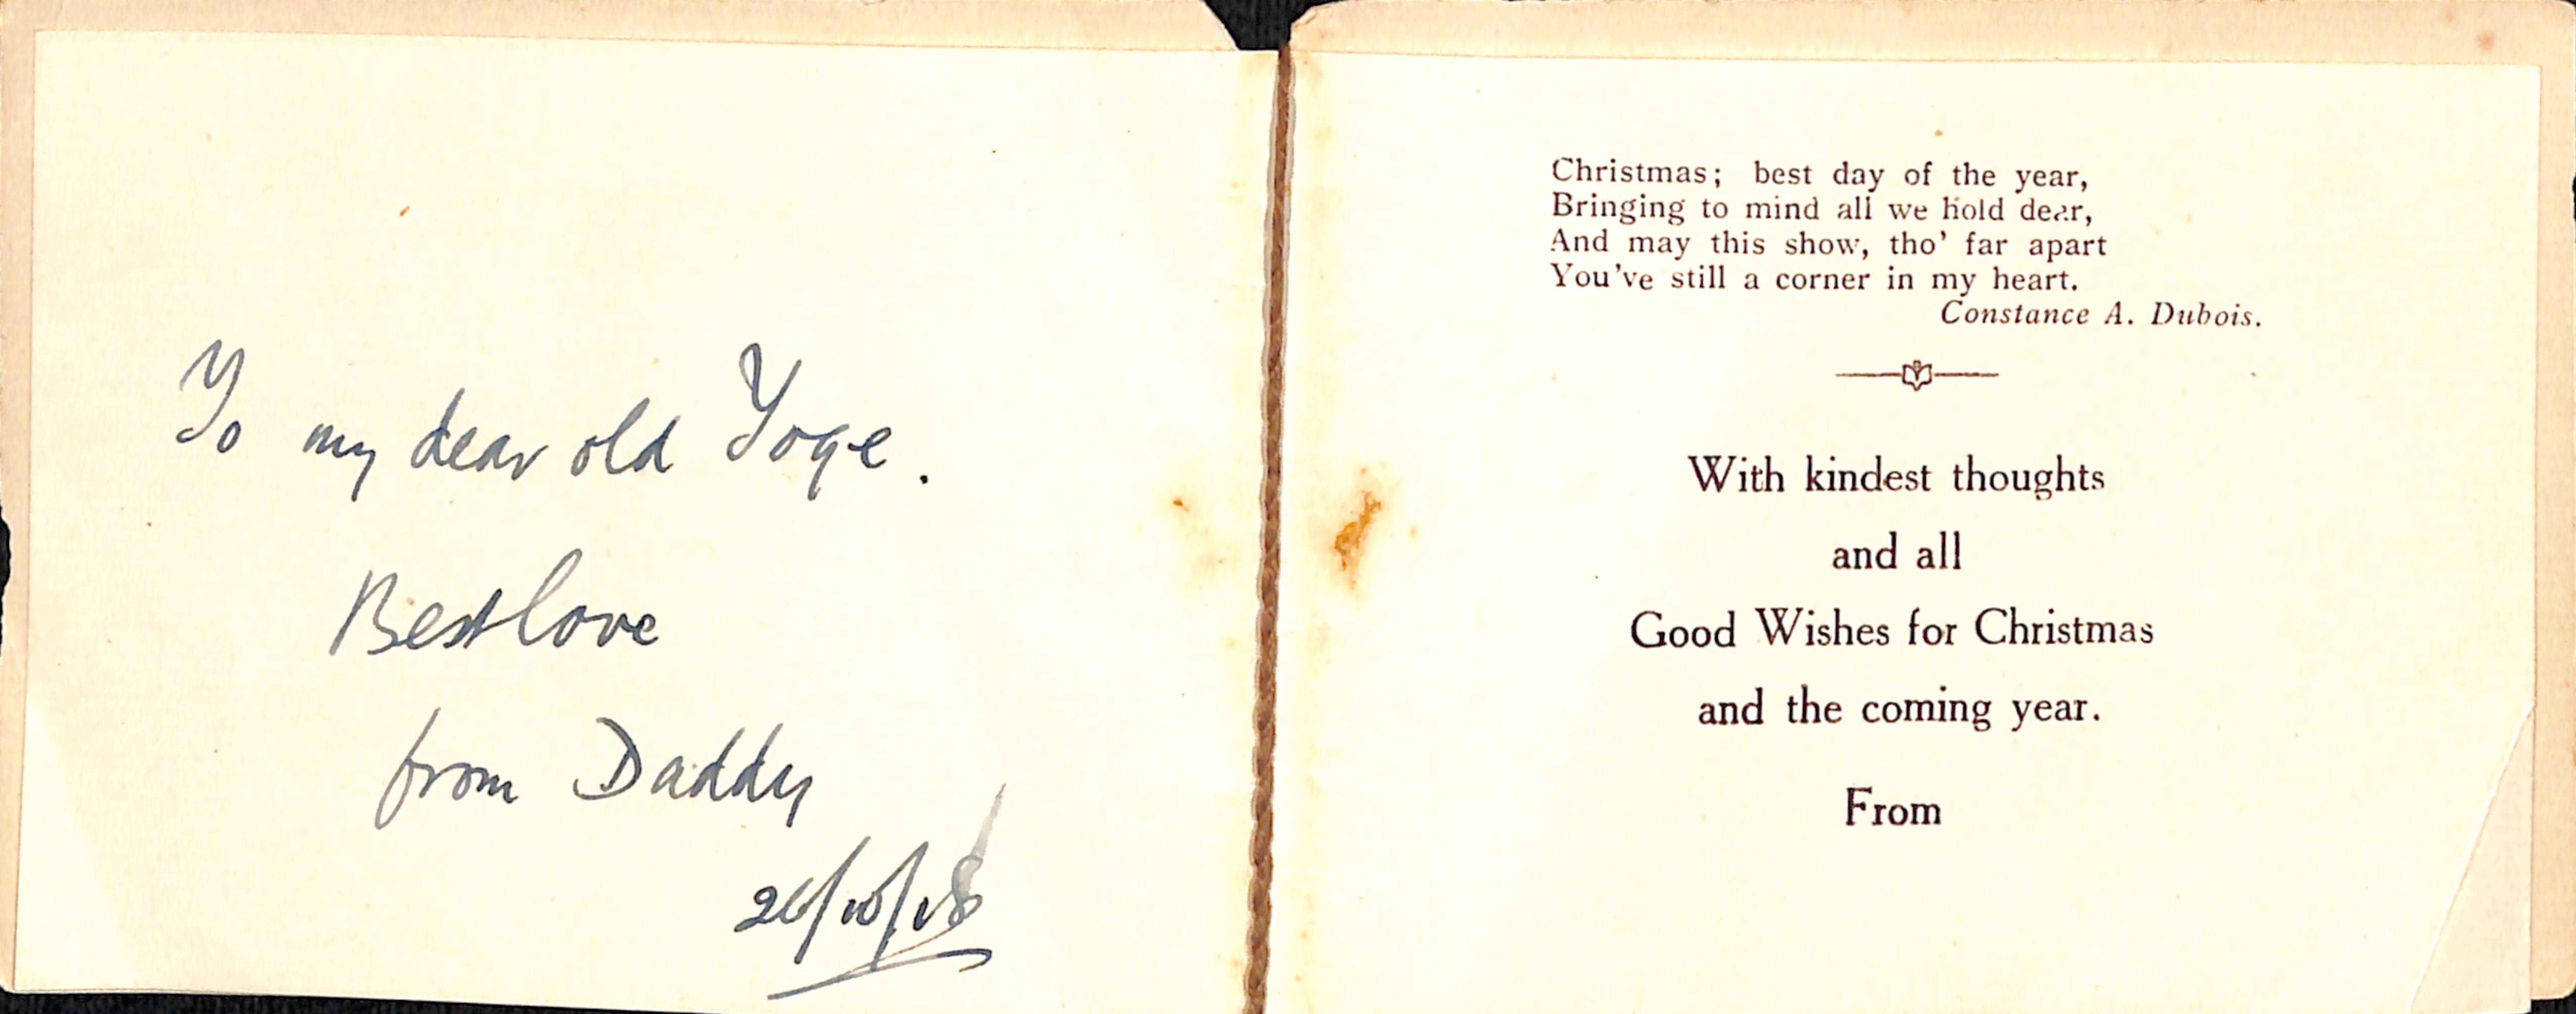 To my dear old Yoge.
Best love
from Daddy
26/10/18
Christmas; best day of the year,
Bringing to mind all we hold dear,
And may this show, tho' far apart
You've still a corner in my heart.
Constance A. Dubois.
With kindest thoughts
and all
Good Wishes for Christmas
and the coming year.
From